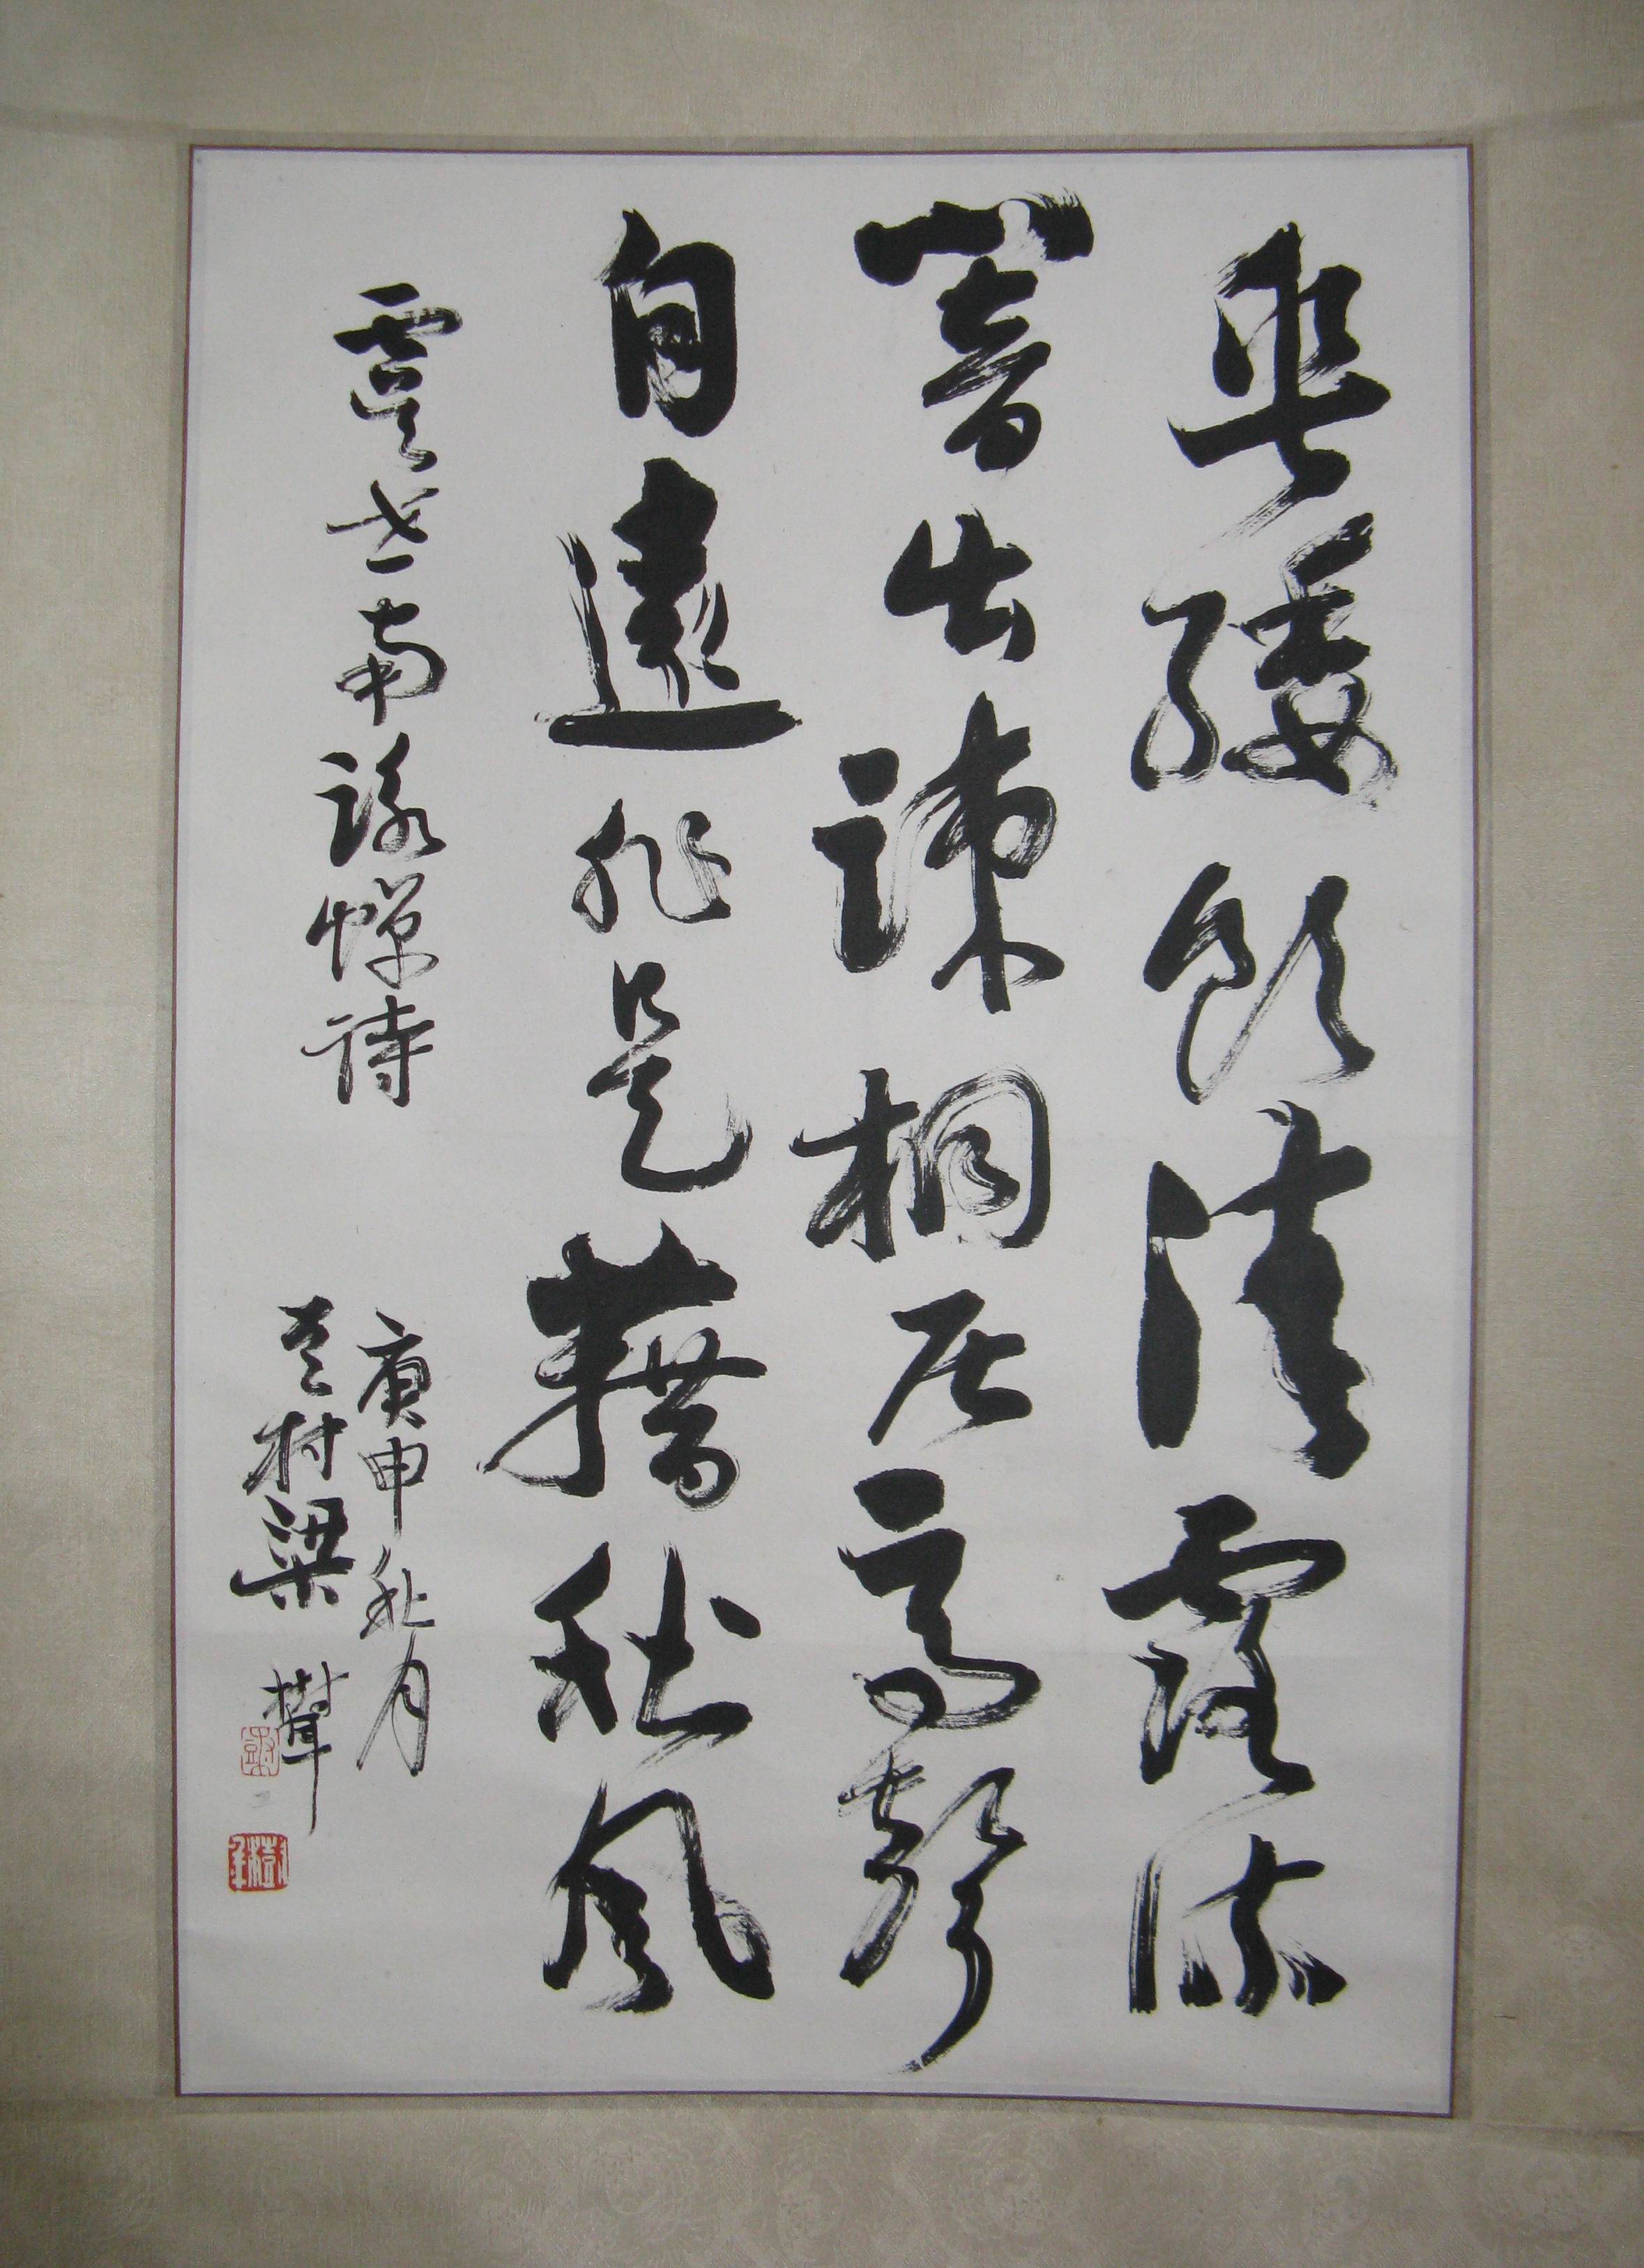 垂緌飲清露流
響出疎桐居高聲
自遠非是藉秋風
虞世南詠蟬詩
庚申秋月
豆村梁樹年